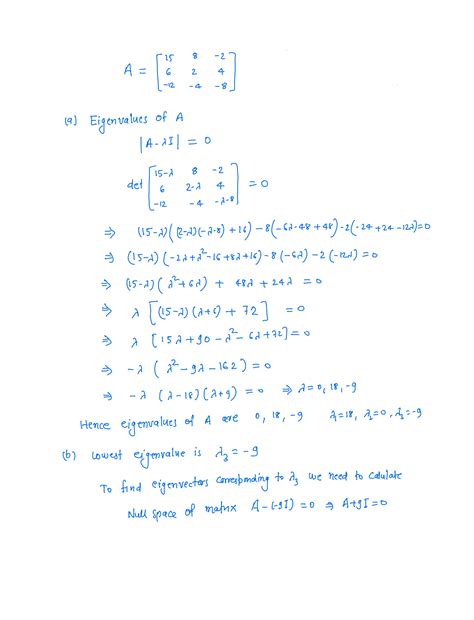 A = [15 8 -2
6 2 4
-12 -4 -8]
(a) Eigenvalues of A
|A-λI| = 0
det [15-λ 8 -2
6 2-λ 4
-12 -4 -λ-8] = 0
⇒ (15-λ)((2-λ)(-λ-8)+16) - 8(-6λ-48+48) - 2(-24+24-12λ)=0
⇒ (15-λ)(-2λ+λ²-16+8λ+16) - 8(-6λ) - 2(-12λ) = 0
⇒ (15-λ)(λ²+6λ) + 48λ + 24λ = 0
⇒ λ[(15-λ)(λ+6) + 72] = 0
⇒ λ[15λ+90-λ²-6λ+72] = 0
⇒ -λ(λ²-9λ-162) = 0
⇒ -λ(λ-18)(λ+9) = 0 ⇒ λ=0, 18, -9
Hence eigenvalues of A are 0, 18, -9 λ=18, λ₂=0, λ₃=-9
(b) Lowest eigenvalue is λ₃ = -9
To find eigenvectors corresponding to λ₃ we need to calulate
Null space of matrix A-(-9I) = 0 ⇒ A+9I=0